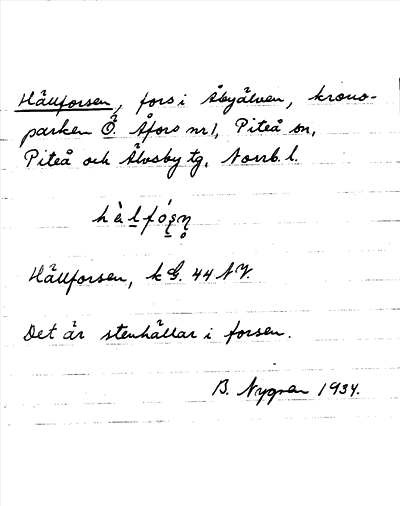 Hällforsen, fors i Åbyälven, krono-
parken Ö. Åfors nr 1, Piteå sn,
Piteå och Älvsby tg, Norrb. l.
Hällforsen, k G. 44 NV.
Det är stenhällar i forsen.
B. Nygren 1934.